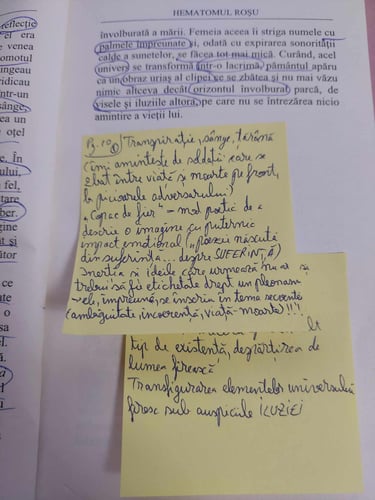 HEMATOMUL ROȘU
reflecție
el era
venea
omotul
ngeau
ridiau
ntr-un
sânge,
ea un
e oțel
e. În
ului,
e fel,
tare
ber.
ea
at și
ător
învolburată a mării. Femeia aceea îi striga numele cu
palmele împreunate și, odată cu expirarea sonorității
calde a sunetelor, se făcea tot mai mică. Curând, acel
univers se transformă într-o lacrimă, pământul apăru
ca un obraz uriaș al clipei ce se zbătea și nu mai văzu
nimic altceva decât orizontul învolburat parcă, de
visele și iluziile altora, pe care nu se întrezărea nicio
amintire a vieții lui.
Transpirație, sânge, țărână
(îmi amintește de soldații care se
zbat între viață și moarte pe front,
la picioarele adversarului)
"Copac de fier" - mod poetic de a
descrie o imagine cu puternic
impact emoțional ("poezii născută
din suferință... despre SUFERINȚĂ)
Inerția și ideile care urmează nu ar
trebui să fie etichetate drept un pleonasm
- ele, împreună, se înscriu în tema secvenței
(ambiguitate, incoerență, viață-moarte)!!!
tip de existență, despărțirea de
lumea firească
Transfigurarea elementelor universului
firesc sub auspiciile ILUZIEI